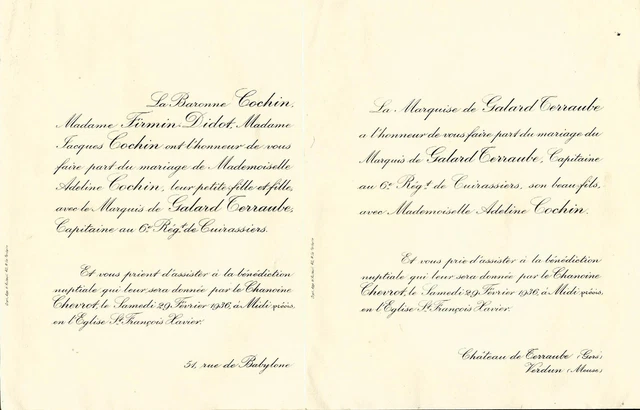 La Baronne Cochin,
Madame Firmin-Didot, Madame
Jacques Cochin ont l'honneur de vous
faire part du mariage de Mademoiselle
Adeline Cochin, leur petite-fille et fille,
avec le Marquis de Galard Terraube,
Capitaine au 6e Régt de Cuirassiers.
Et vous prient d'assister à la bénédiction
nuptiale qui leur sera donnée par le Chanoine
Chevrot, le Samedi 29 Février 1936, à Midi précis,
en l'Eglise St François Xavier.
51, rue de Babylone
La Marquise de Galard Terraube
a l'honneur de vous faire part du mariage du
Marquis de Galard Terraube, Capitaine
au 6e Régt de Cuirassiers, son beau-fils,
avec Mademoiselle Adeline Cochin.
Et vous prie d'assister à la bénédiction
nuptiale qui leur sera donnée par le Chanoine
Chevrot, le Samedi 29 Février 1936, à Midi précis,
en l'Eglise St François Xavier.
Château de Terraube (Gers)
Verdun (Meuse)